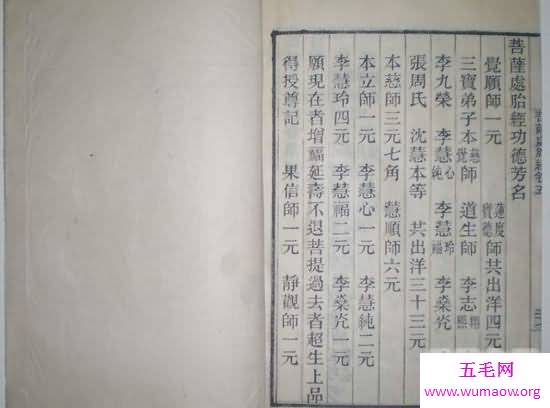 菩薩處胎經功德芳名
覺順師一元 蓮度寶德師共出洋四元
三寶弟子本慈覺師 道生師 李志翔熙
李九榮 李慧心純 李慧玲福 李燊灮
張周氏 沈慧本等 共出洋三十三元
本慈師三元七角 慧順師六元
本立師一元 李慧心一元 李慧純二元
李慧玲四元 李慧福二元 李燊灮一元
願現在者增福延壽不退菩提過去者超生上品
得授尊記 果信師一元 靜觀師一元
五毛网
www.wumaow.org